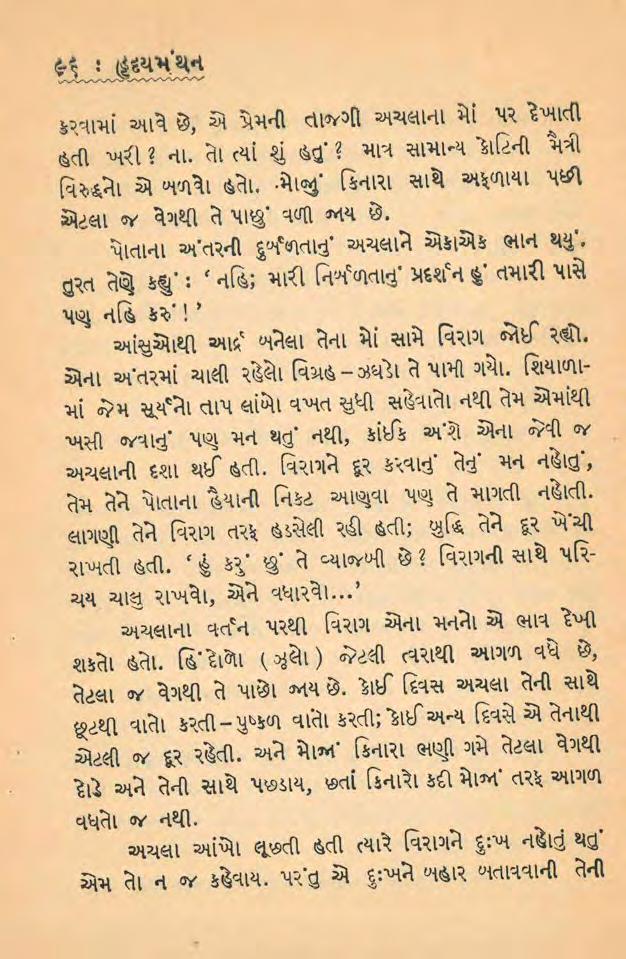 ૯૬ : હૃદયમંથન
કરવામાં આવે છે, એ પ્રેમની તાજગી અચલાના મેાં પર દેખાતી
હતી ખરી? ના. તેા ત્યાં શું હતું? માત્ર સામાન્ય કેાટિની મૈત્રી
વિરુદ્ધનેા એ બળવેા હતેા. મેાજું કિનારા સાથે અફળાયા પછી
એટલા જ વેગથી તે પાછું વળી જાય છે.
પેાતાના અંતરની દુર્બળતાનું અચલાને એકાએક ભાન થયું.
તુરત તેણે કહ્યું : ‘નહિ; મારી નિર્બળતાનું પ્રદર્શન હું તમારી પાસે
પણ નહિ કરું!’
આંસુએાથી આર્દ્ર બનેલા તેના મેાં સામે વિરાગ જોઈ રહ્યો.
એના અંતરમાં ચાલી રહેલેા વિગ્રહ – ઝઘડેા તે પામી ગયેા. શિયાળા-
માં જેમ સૂર્યનેા તાપ લાંબેા વખત સુધી સહેવાતેા નથી તેમ એમાંથી
ખસી જવાનું પણ મન થતું નથી, કાંઈક અંશે એના જેવી જ
અચલાની દશા થઈ હતી. વિરાગને દૂર કરવાનું તેનું મન નહેાતું,
તેમ તેને પેાતાના હૈયાની નિકટ આણવા પણ તે માગતી નહેાતી.
લાગણી તેને વિરાગ તરફ હડસેલી રહી હતી; બુદ્ધિ તેને દૂર ખેંચી
રાખતી હતી. ‘હું કરું છું તે વ્યાજબી છે? વિરાગની સાથે પરિ-
ચય ચાલુ રાખવેા, એને વધારવેા...’
અચલાના વર્તન પરથી વિરાગ એના મનનેા એ ભાવ દેખી
શકતેા હતેા. હિંદેાળેા (ઝૂલેા) જેટલી ત્વરાથી આગળ વધે છે,
તેટલા જ વેગથી તે પાછેા જાય છે. કેાઈ દિવસ અચલા તેની સાથે
છૂટથી વાતેા કરતી – પુષ્કળ વાતેા કરતી; કેાઈ અન્ય દિવસે એ તેનાથી
એટલી જ દૂર રહેતી. અને મેાજાં કિનારા ભણી ગમે તેટલા વેગથી
દેાડે અને તેની સાથે પછડાય, છતાં કિનારેા કદી મેાજાં તરફ આગળ
વધતેા જ નથી.
અચલા આંખેા લૂછતી હતી ત્યારે વિરાગને દુઃખ નહેાતું થતું
એમ તેા ન જ કહેવાય. પરંતુ એ દુઃખને બહાર બતાવવાની તેની